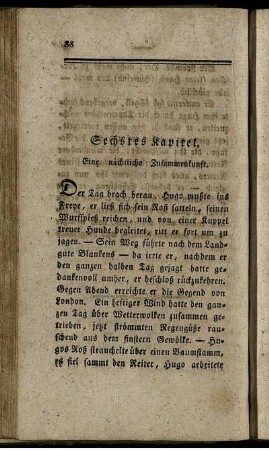 88
Sechstes Kapitel.
Eine nächtliche Zusammenkunft.
Der Tag brach heran, Hugo mußte ins
Freye, er ließ sich sein Roß satteln, seinen
Wurfspieß reichen, und von einer Kuppel
treuer Hunde begleitet, ritt er fort um zu
jagen. — Sein Weg führte nach dem Land-
gute Blankens — da irrte er, nachdem er
den ganzen halben Tag gejagt hatte ge-
dankenvoll umher, er beschloß rückzukehren.
Gegen Abend erreichte er die Gegend von
London. Ein heftiger Wind hatte den gan-
zen Tag über Wetterwolken zusammen ge-
trieben, jetzt strömmten Regengüße rau-
schend aus dem finstern Gewölke. — Hu-
gos Roß strauchelte über einen Baumstamm,
es fiel sammt den Reiter, Hugo arbeitete